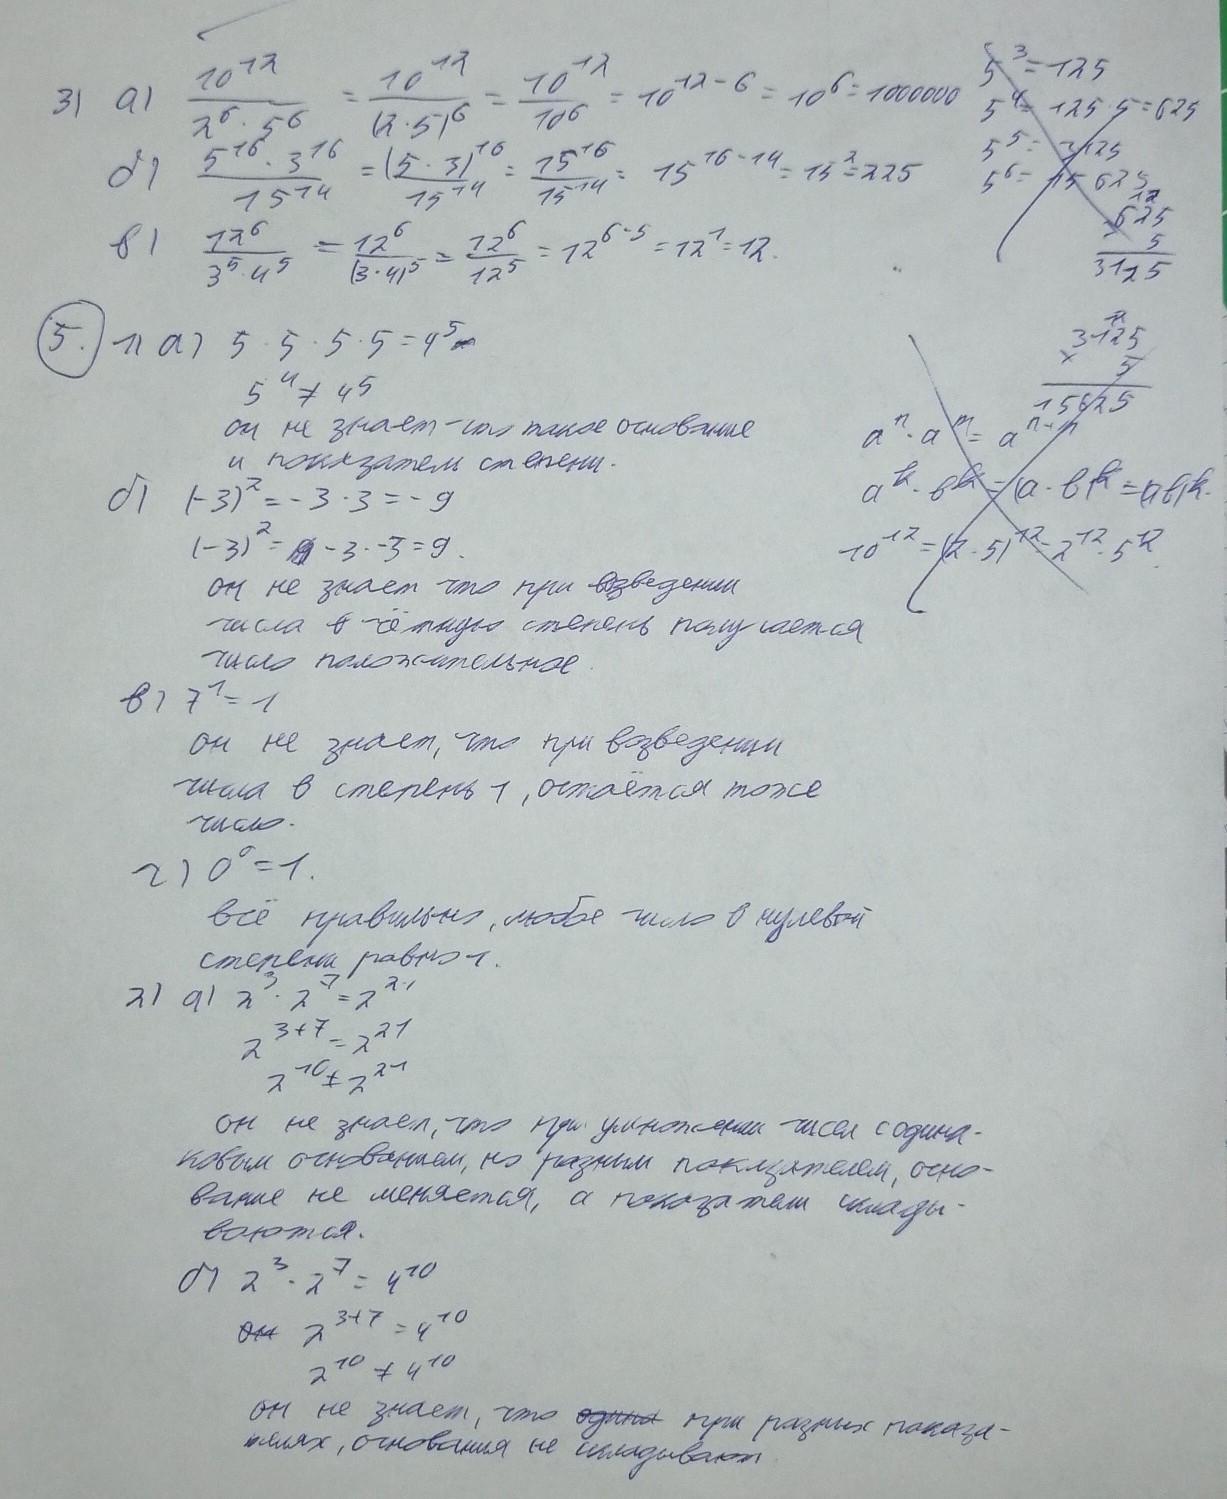 3) а) 10^12 / (2^6 · 5^6) = 10^12 / (2·5)^6 = 10^12 / 10^6 = 10^(12-6) = 10^6 = 1000000
б) 5^16 · 3^16 / 15^14 = (5·3)^16 / 15^14 = 15^16 / 15^14 = 15^(16-14) = 15^2 = 225
в) 12^6 / (3^5 · 4^5) = 12^6 / (3·4)^5 = 12^6 / 12^5 = 12^(6-5) = 12^1 = 12.
5^3 = 125
5^4 = 125·5 = 625
5^5 = 3125
5^6 = 15 625
12
625
× 5
3125
5. 1) а) 5 · 5 · 5 · 5 = 4^5
5^4 ≠ 4^5
он не знает что такое основание
и показатели степени.
б) (-3)^2 = -3·3 = -9
(-3)^2 = -3·-3 = 9.
он не знает что при возведении
числа в чётную степень получается
число положительное.
в) 7^1 = 1
он не знает, что при возведении
числа в степень 1, остаётся тоже
число.
г) 0^0 = 1.
всё правильно, любое число в нулевой
степени равно 1.
2) а) 2^3 · 2^7 = 2^21
2^(3+7) = 2^21
2^10 ≠ 2^21
он не знает, что при умножении чисел с одина-
ковым основанием, но разным показателем, осно-
вание не меняется, а показатели склады-
ваются.
б) 2^3 · 2^7 = 4^10
он 2^(3+7) = 4^10
2^10 ≠ 4^10
он не знает, что одина при разных показа-
телях, основания не складывают
3125
× 5
15625
a^n · a^m = a^(n+m)
a^k · b^k = (a·b)^k = (ab)^k.
10^12 = (2·5)^12 = 2^12 · 5^12